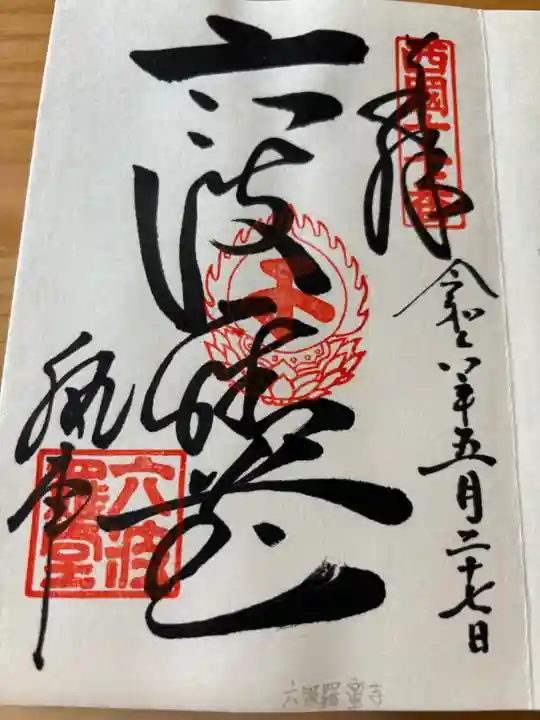 奉拝
西国十七番
令和八年五月二十七日
六波
執事
六波羅堂
六波羅蜜寺